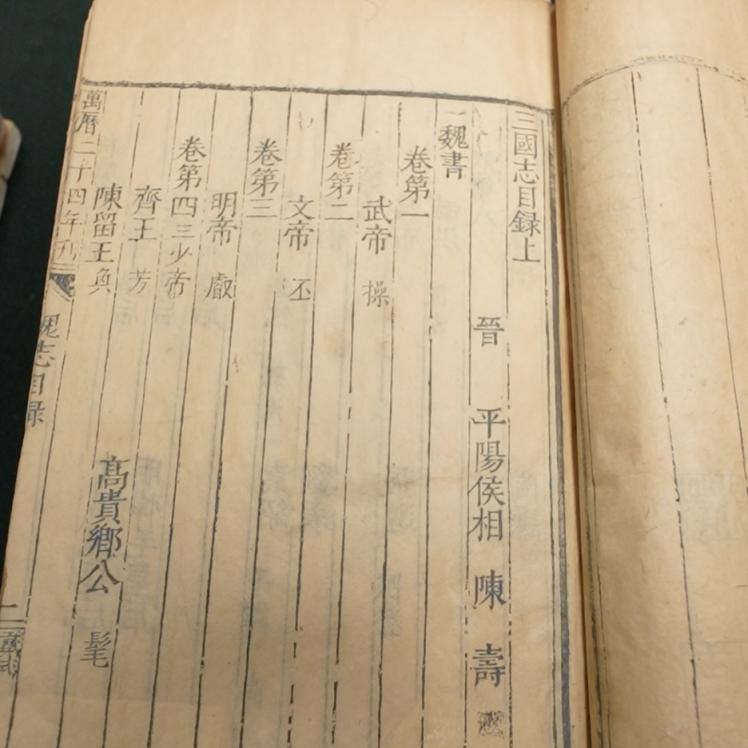 三國志目録上
晉 平陽侯相 陳 壽
魏書
卷第一
武帝 操
卷第二
文帝 丕
卷第三
明帝 叡
卷第四 三少帝
齊王 芳
高貴鄉公 髦
陳留王 奐
萬曆二十四年刊
魏志目録
二